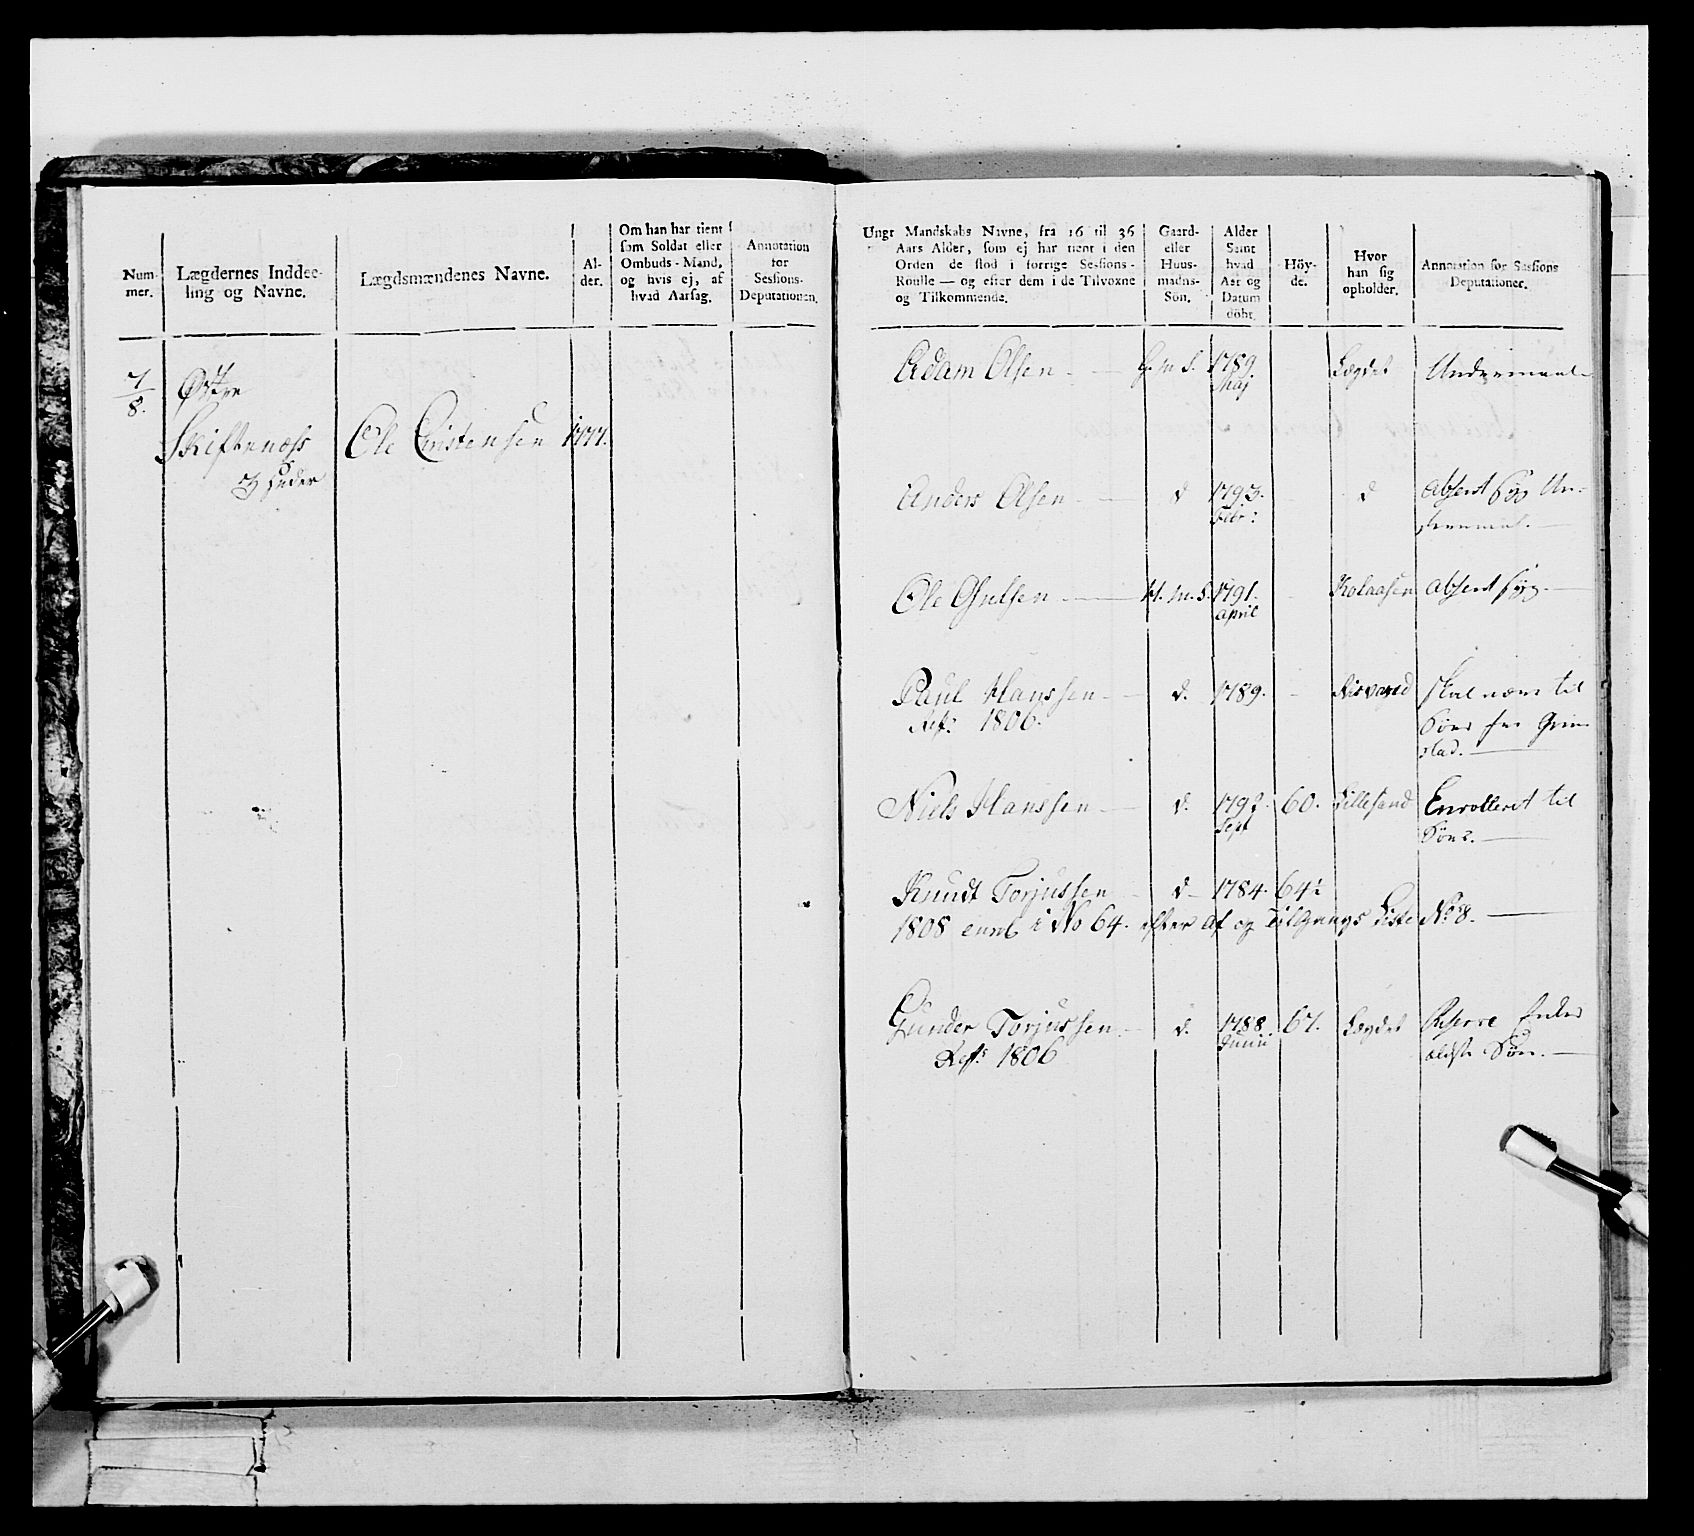 Num-
mer.
Lægdernes Inddee-
ling og Navne.
Lægdsmændenes Navne.
Al-
der.
Om han har tient
som Soldat eller
Ombuds-Mand,
og hvis ej, af
hvad Aarsag.
Annotation
for
Sessions-
Deputationen.
7/8.
Østre
Skiftenæss
Ole Christensen 1777.
Ungt Mandskabs Navne, fra 16 til 36
Aars Alder, som ej har tient i den
Orden de stod i forrige Sessions-
Roulle — og efter dem i de Tilvoxne
og Tilkommende.
Gaard-
eller
Huus-
mands-
Sön.
Alder
Samt
hvad
Aar og
Datum
döbt.
Höy-
de.
Hvor
han sig
opholder.
Annotation for Sessions
Deputationer.
Adam Olsen G. m S. 1789. Lægdet Undermaal
Maj
Anders Olsen d 1793. d Absent
Febr:
Ole H. m. S. 1791. absent syg.
April
Paul Hanssen d. 1789. skal være til
Ref: 1806. Grim-
stad.
Niels Hanssen d. 1792. 60. Lillesand Enrolleret til
Sept Søes.
Knudt Torjussen d 1784. 64½
1808 enrl i No 64. efter Af og Tilgangs Liste No 8.
Gunder Torjussen d. 1788. 67. Lægdet Reserve Enkes
Junii ældste Søn.
Ref: 1806